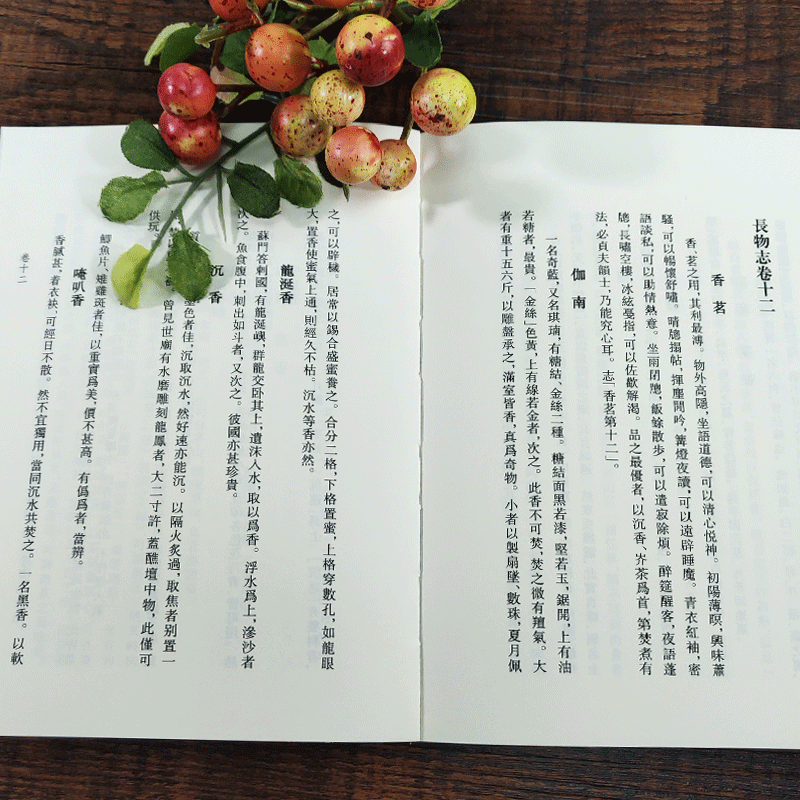 長物志卷十二
香茗
香、茗之用,其利最溥。物外高隱,坐語道德,可以清心悅神。初陽薄暝,興味蕭
騷,可以暢懷舒嘯。晴牕搨帖,揮麈閒吟,篝燈夜讀,可以遠辟睡魔。青衣紅袖,密
語談私,可以助情熱意。坐雨閉牕,飯餘散步,可以遣寂除煩。醉筵醒客,夜語蓬
牕,長嘯空樓,冰絃戛指,可以佐歡解渴。品之最優者,以沉香、岕茶爲首,第焚煮有
法,必貞夫韻士,乃能究心耳。志「香茗第十二」。
伽南
一名奇藍,又名琪㻞,有糖結、金絲二種。糖結面黑若漆,堅若玉,鋸開,上有油
若糖者,最貴。「金絲」色黃,上有線若金者,次之。此香不可焚,焚之微有羶氣。大
者有重十五六斤,以雕盤承之,滿室皆香,真爲奇物。小者以製扇墜、數珠,夏月佩
之,可以辟穢。居常以錫合盛蜜養之。合分二格,下格置蜜,上格穿數孔,如龍眼
大,置香使蜜氣上通,則經久不枯。沉水等香亦然。
龍涎香
蘇門答剌國,有龍涎嶼,群龍交卧其上,遺沫入水,取以爲香。浮水爲上,滲沙者
次之。魚食腹中,刺出如斗者,又次之。彼國亦甚珍貴。
沉香
墨色者佳,沉取沉水,然好速亦能沉。以隔火炙過,取焦者别置一
曾見世廟有水磨雕刻龍鳳者,大二寸許,蓋醮壇中物,此僅可
供玩。
鯽魚片、雉雞斑者佳,以重實爲美,價不甚高。有僞爲者,當辨。
唵叭香
香膩甚,着衣袂,可經日不散。然不宜獨用,當同沉水共焚之。一名黑香。以軟
卷十二